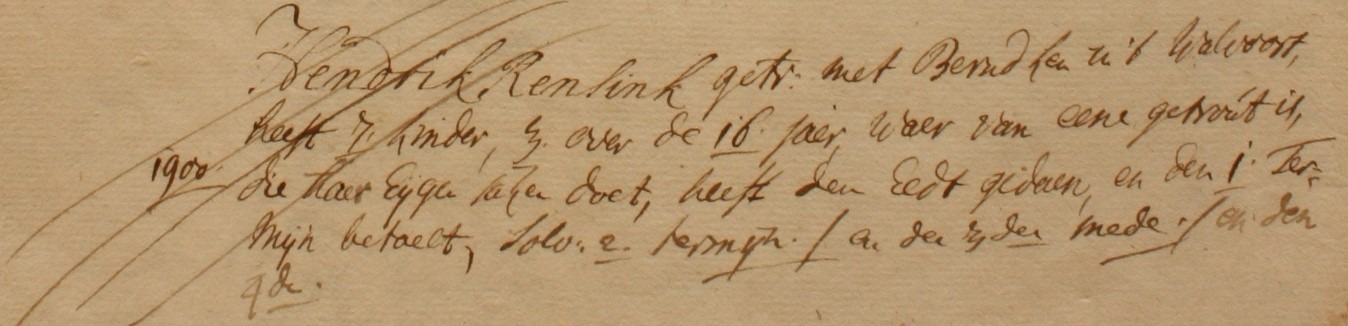 Hendrik Rensink getr: met Berndken in't Walvoort,
heeft 7. kinder, 3. over de 16. jaer, waer van eene getrout is,
1900. die haer Eijgen saken doet, heeft den Eedt gedaen, en den 1. Ter=
Mijn betaelt, Solv: 2. termijn. / en den 3den mede. / en den
4de.